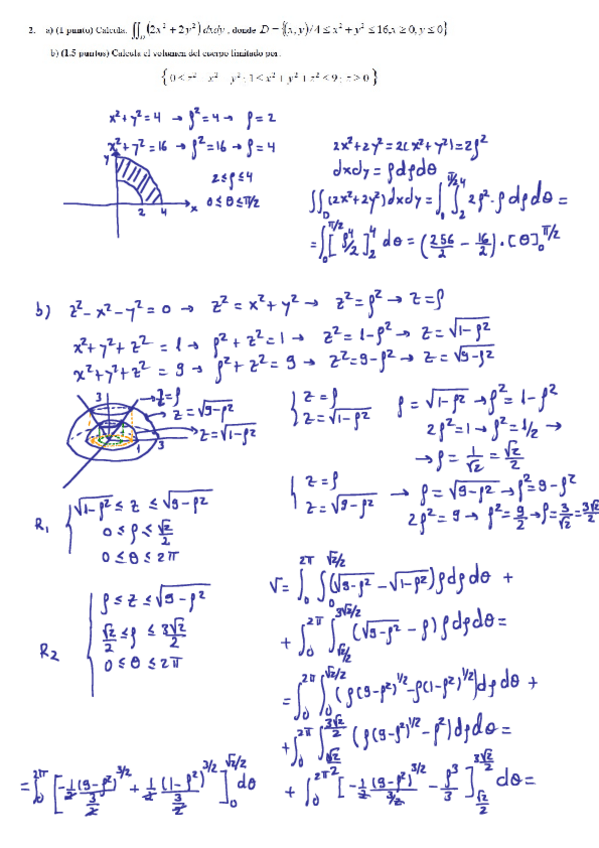 2. a) (1 punto) Calcula: ∬_D (2x² + 2y²) dxdy , donde D = {(x, y)/4 ≤ x² + y² ≤ 16, x ≥ 0, y ≤ 0}
b) (1.5 puntos) Calcula el volumen del cuerpo limitado por:
{ 0 < z² x² y² ; 1 < x² + y² + z² < 9 ; z > 0 }
x² + y² = 4 → ρ² = 4 → ρ = 2
x² + y² = 16 → ρ² = 16 → ρ = 4
y
2 ≤ ρ ≤ 4
0 ≤ θ ≤ π/2
2 4 x
2x² + 2y² = 2(x² + y²) = 2ρ²
dxdy = ρdρdθ
∬_D (2x² + 2y²) dxdy = ∫_0^{π/2} ∫_2^4 2ρ² · ρ dρ dθ =
= ∫_0^{π/2} [ρ⁴/2]_2^4 dθ = (256/2 − 16/2) · [θ]_0^{π/2}
b) z² − x² − y² = 0 → z² = x² + y² → z² = ρ² → z = ρ
x² + y² + z² = 1 → ρ² + z² = 1 → z² = 1 − ρ² → z = √(1−ρ²)
x² + y² + z² = 9 → ρ² + z² = 9 → z² = 9 − ρ² → z = √(9−ρ²)
3
z = ρ
z = √(9−ρ²)
z = √(1−ρ²)
1 3
{ z = ρ
z = √(1−ρ²)
ρ = √(1−ρ²) → ρ² = 1 − ρ²
2ρ² = 1 → ρ² = 1/2 →
→ ρ = 1/√2 = √2/2
{ z = ρ
z = √(9−ρ²)
→ ρ = √(9−ρ²) → ρ² = 9 − ρ²
2ρ² = 9 → ρ² = 9/2 → ρ = 3/√2 = 3√2/2
R₁ { √(1−ρ²) ≤ z ≤ √(9−ρ²)
0 ≤ ρ ≤ √2/2
0 ≤ θ ≤ 2π
R₂ { ρ ≤ z ≤ √(9−ρ²)
√2/2 ≤ ρ ≤ 3√2/2
0 ≤ θ ≤ 2π
V = ∫_0^{2π} ∫_0^{√2/2} (√(9−ρ²) − √(1−ρ²)) ρ dρ dθ +
+ ∫_0^{2π} ∫_{√2/2}^{3√2/2} (√(9−ρ²) − ρ) ρ dρ dθ =
= ∫_0^{2π} ∫_0^{√2/2} (ρ(9−ρ²)^{1/2} − ρ(1−ρ²)^{1/2}) dρ dθ +
+ ∫_0^{2π} ∫_{√2/2}^{3√2/2} (ρ(9−ρ²)^{1/2} − ρ²) dρ dθ =
= ∫_0^{2π} [−1/2 (9−ρ²)^{3/2}/(3/2) + 1/2 (1−ρ²)^{3/2}/(3/2)]_0^{√2/2} dθ + ∫_0^{2π} [−1/2 (9−ρ²)^{3/2}/(3/2) − ρ³/3]_{√2/2}^{3√2/2} dθ =